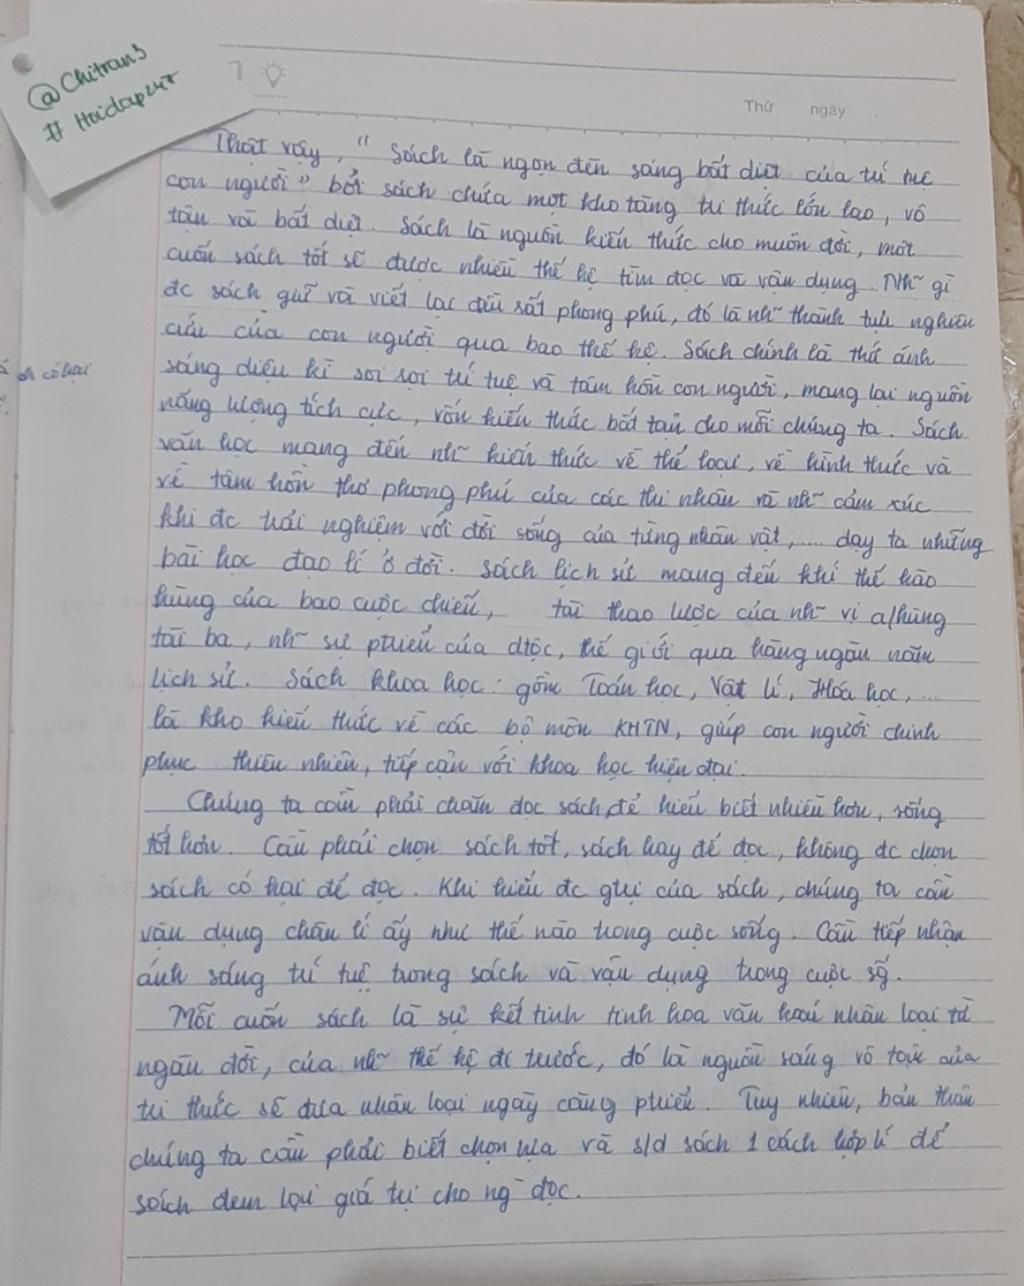 @Chitran3
# Hoidap247
Thứ ngày
Thật vậy, " Sách là ngọn đèn sáng bất diệt của trí tuệ
con người" bởi sách chứa một kho tàng tri thức lớn lao, vô
tận và bất diệt. Sách là nguồn kiến thức cho muôn đời, một
cuốn sách tốt sẽ được nhiều thế hệ tìm đọc và vận dụng. Nh~ gì
đc sách giữ và viết lại đều rất phong phú, đó là nh~ thành tựu nghiên
cứu của con người qua bao thế hệ. Sách chính là thứ ánh
sáng diệu kì soi rọi trí tuệ và tâm hồn con người, mang lại nguồn
năng lượng tích cực, vốn kiến thức bất tận cho mỗi chúng ta. Sách
văn học mang đến nh~ kiến thức về thể loại, về hình thức và
về tâm hồn thơ phong phú của các thi nhân và nh~ cảm xúc
khi đc trải nghiệm với đời sống của từng nhân vật,... dạy ta những
bài học đạo lí ở đời. Sách lịch sử mang đến khí thế hào
hùng của bao cuộc chiến, tài thao lược của nh~ vị a/hùng
tài ba, nh~ sự ptriển của dtộc, thế giới qua hàng ngàn năm
lịch sử. Sách khoa học: gồm Toán học, Vật lí, Hóa học,...
là kho kiến thức về các bộ môn KHTN, giúp con người chinh
phục thiên nhiên, tiếp cận với khoa học hiện đại.
Chúng ta cần phải chăm đọc sách để hiểu biết nhiều hơn, sống
tốt hơn. Cần phải chọn sách tốt, sách hay để đọc, không đc chọn
sách có hại để đọc. Khi hiểu đc gtrị của sách, chúng ta cần
vận dụng chân lí ấy như thế nào trong cuộc sống. Cần tiếp nhận
ánh sáng trí tuệ trong sách và vận dụng trong cuộc sg.
Mỗi cuốn sách là sự kết tinh tinh hoa văn hoá nhân loại từ
ngàn đời, của nh~ thế hệ đi trước, đó là nguồn sáng vô tận của
tri thức sẽ đưa nhân loại ngày càng ptriển. Tuy nhiên, bản thân
chúng ta cần phải biết chọn lựa và s/d sách 1 cách hợp lí để
sách đem lại giá trị cho ng~ đọc.